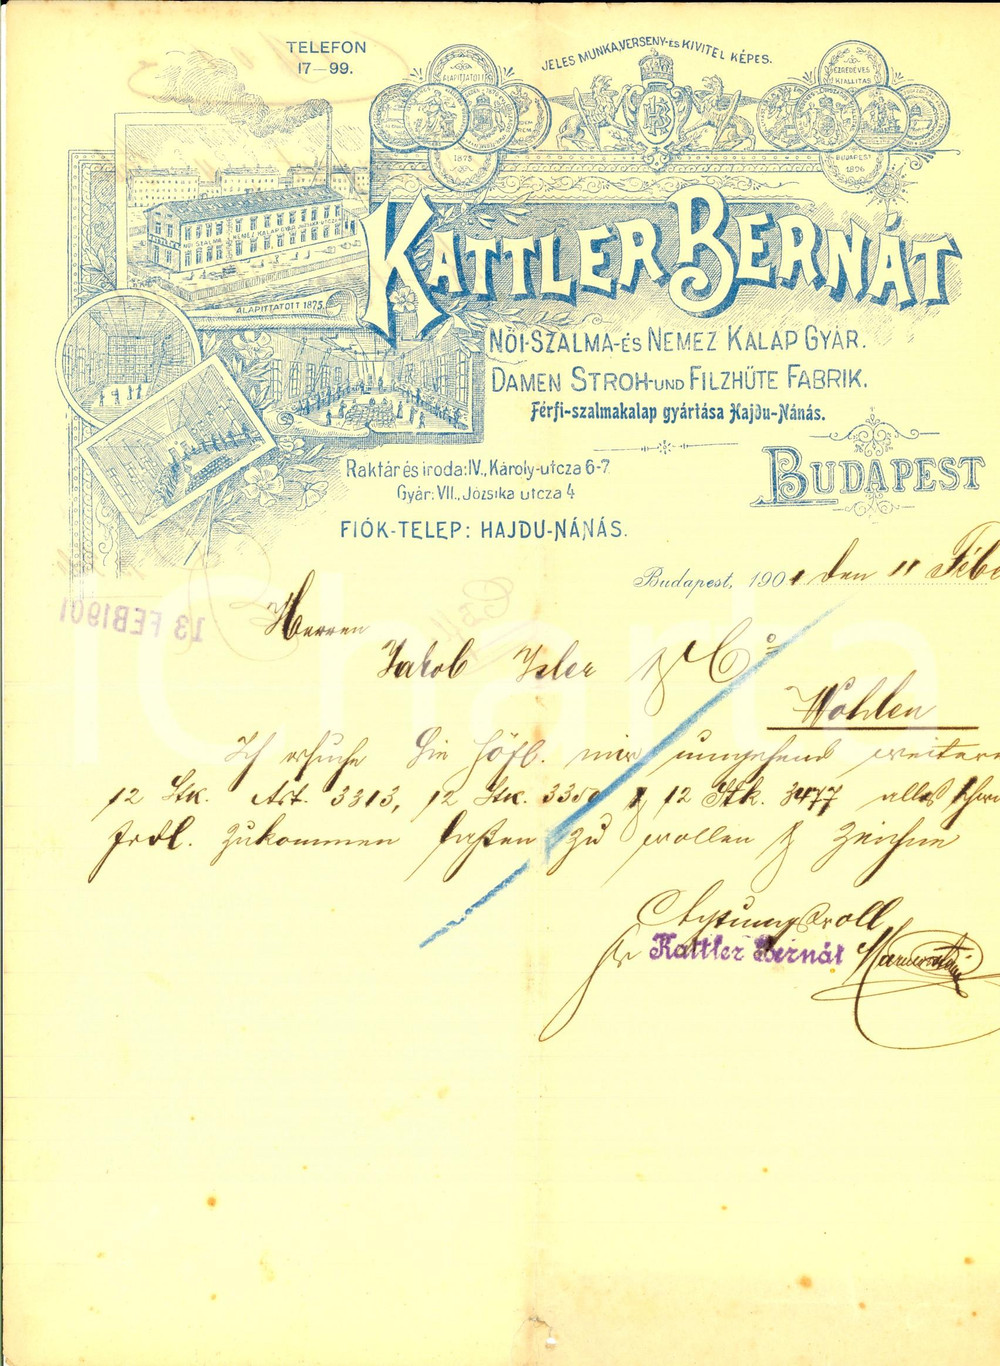 TELEFON
17-99.
JELES MUNKA, VERSENY-ÉS KIVITEL KÉPES.
ALAPITTATOTT
1875
EZREDÉVES
KIALLITÁS
BUDAPEST
1896
NŐI SZALMA ÉS NEMEZ KALAP GYÁR
ALAPITTATOTT 1875.
KATTLER BERNÁT
NŐI-SZALMA-ÉS NEMEZ KALAP GYÁR.
DAMEN STROH-UND FILZHÜTE FABRIK.
Férfi-szalmakalap gyártása Hajdu-Nánás.
BUDAPEST
Raktár és iroda: IV., Károly-utcza 6-7
Gyár: VII., Józsika utcza 4
FIÓK-TELEP: HAJDU-NÁNÁS.
Budapest, 1901 den 11 Febe
13 FEB 1901
Herren
Jakob Isler & Co
Wohlen
Ich ersuche Sie höfl. mir umgehend weitere
12 Stk. Art. 3313, 12 Stk. 3350 & 12 Stk. 3477 alles schwa
frdl. zukommen laßen zu wollen & zeichne
Achtungsvoll
pr Kattler Bernát